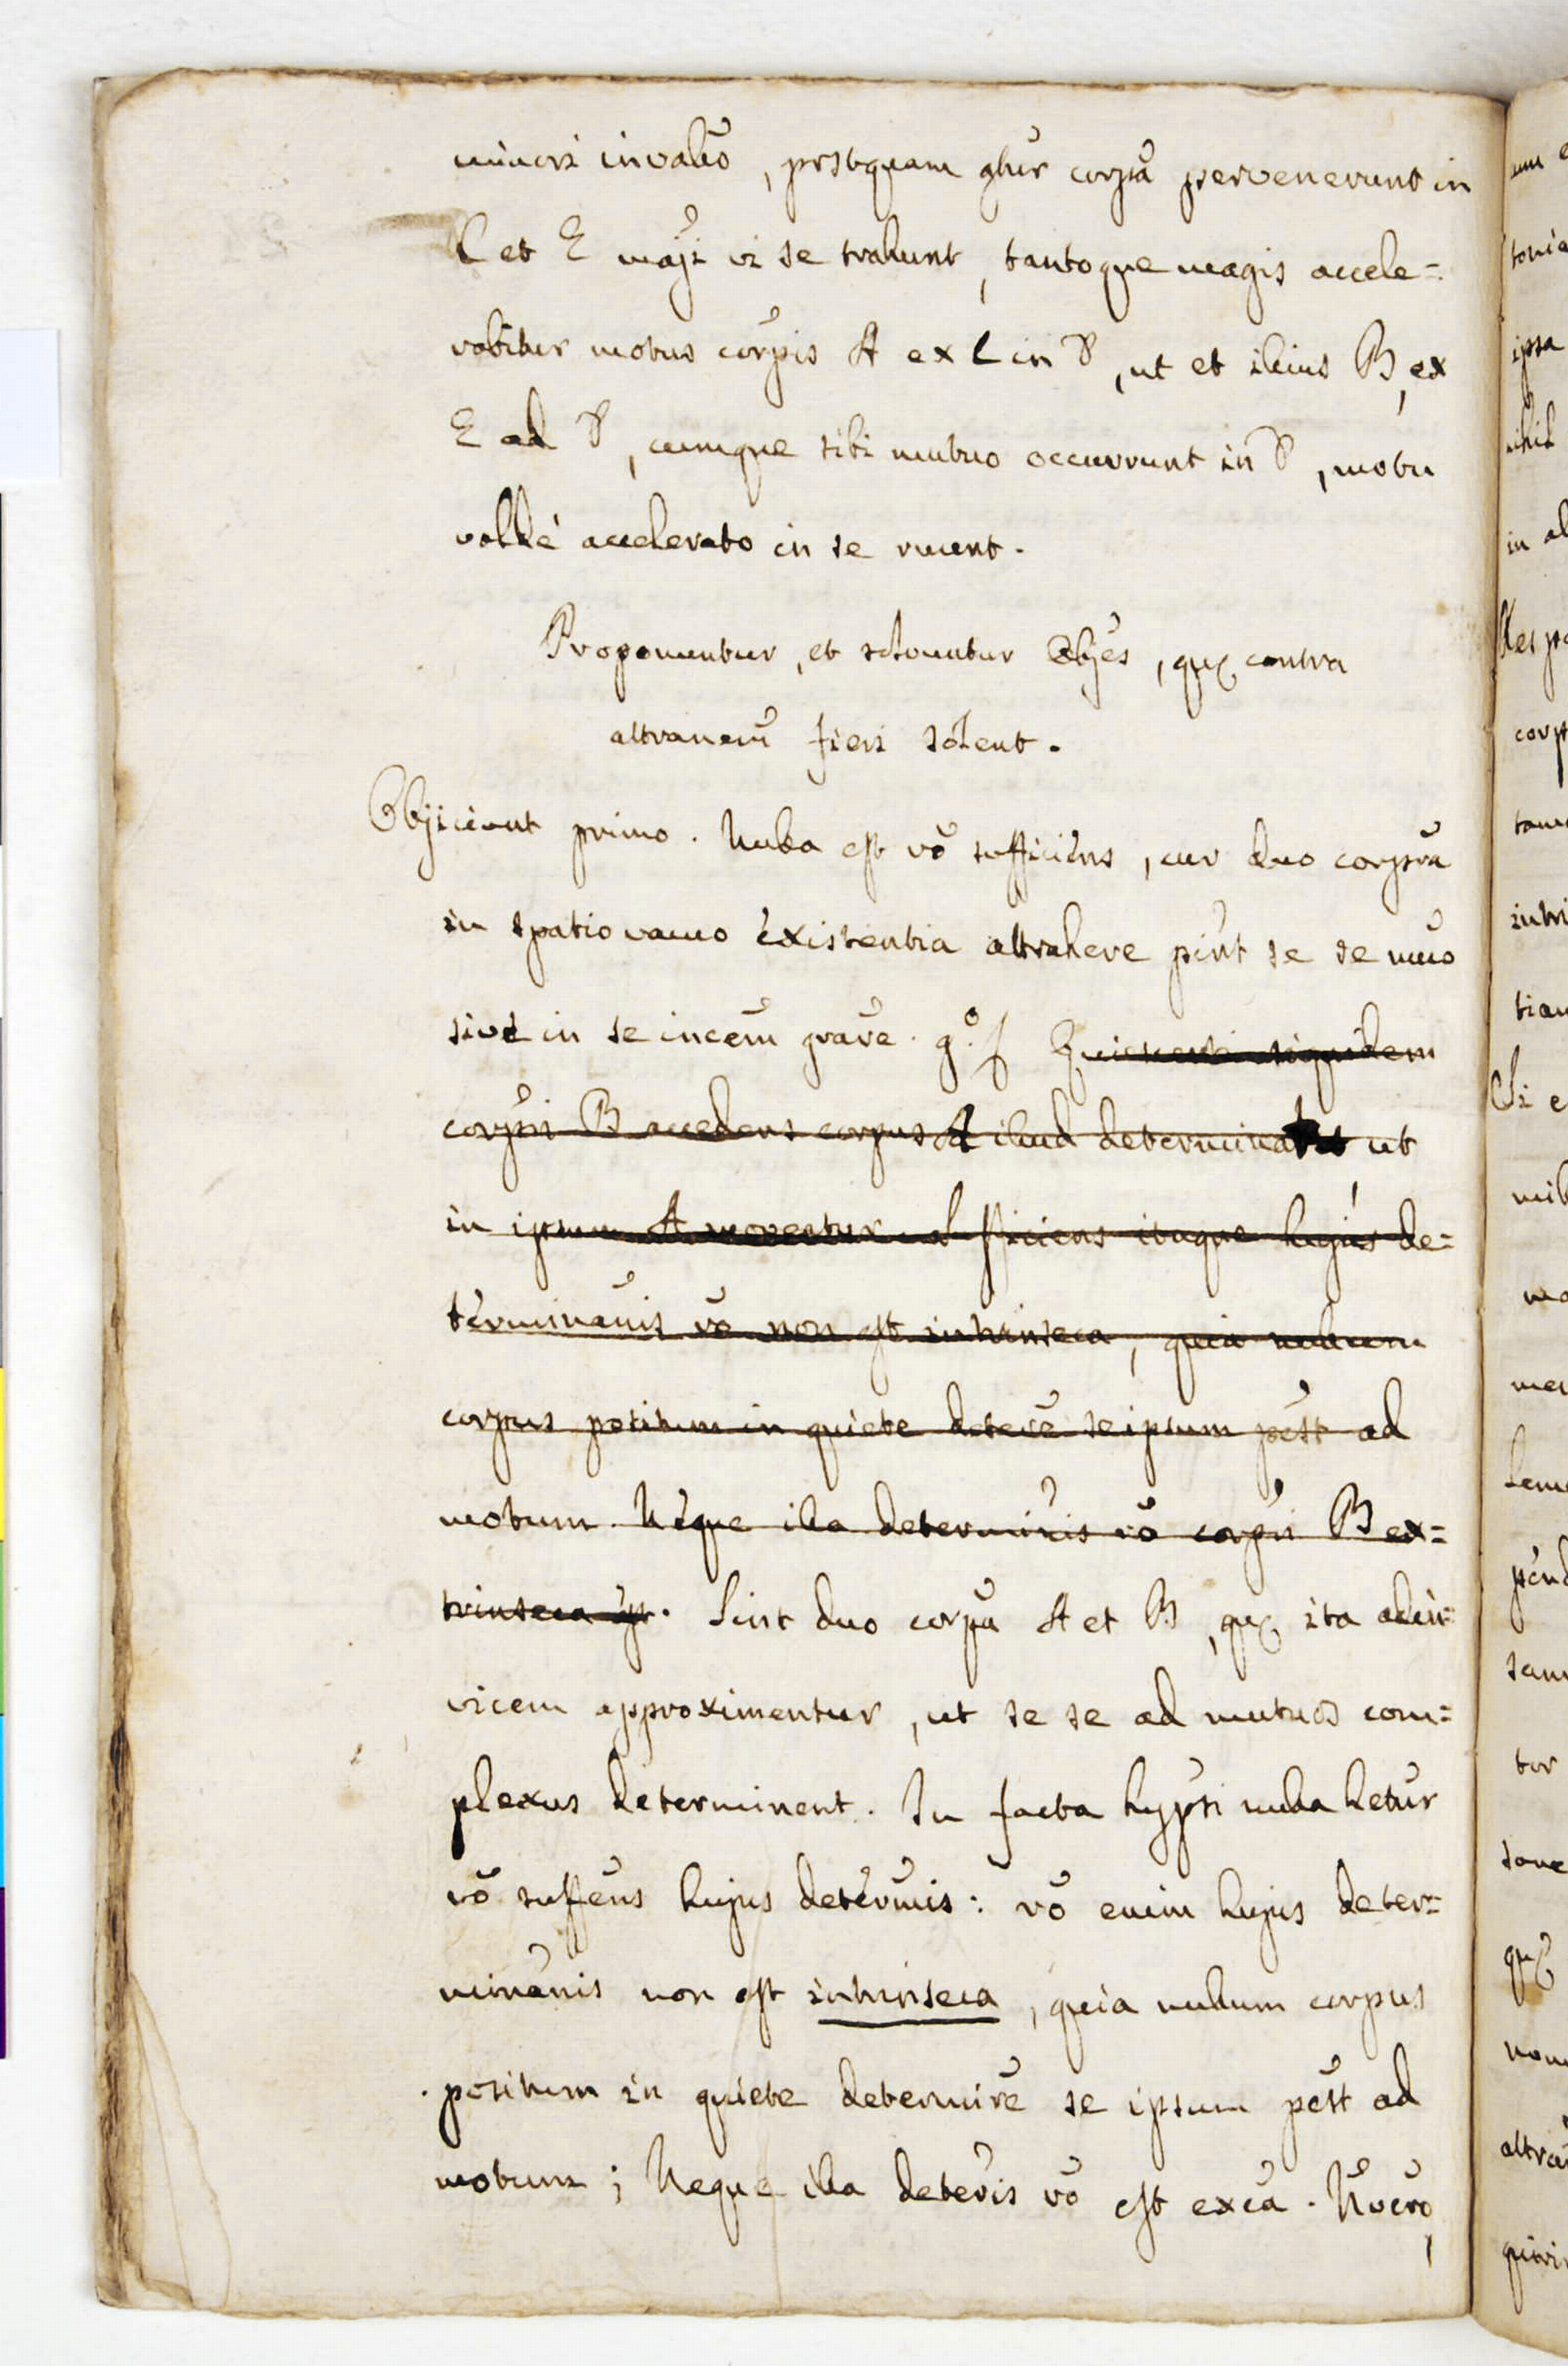 minori invallo, postquam ghur corpa pervenerunt in
C et E maji vi se trahunt, tantoque magis accele=
rabitur motus corpis A ex C in D, ut et illius B, ex
E ad D, cumque sibi mutuo occurrunt in D, motu
valdè accelerato in se ruunt.
Proponuntur, et solvuntur Objēs, quæ contra
attranem fieri solent.
Objiciunt primo. Nulla est rō sufficiens, cur duo corpora
in spatio vacuo existentia attrahere pint se se muo
sive in se incem grare. gº.
Quiescenti siquidem
corpri B accedens corpus A illud determina ut
in ipsum A moveatur iens itaque hujus de=
terminanis rō non est intrinseca, quia nullum
corpus positum in quiete deterē seipsum pēst ad
motum. Neque illa determinis rō corpri B ex=
trinseca Sint duo corpa A et B, quæ ita adin=
vicem approximentur, ut se se ad mutuos com=
plexus determinent. In facta hypsi nulla hetur
rō suffens hujus determis: rō enim hujus deter=
minanis non est intrinseca, quia nullum corpus
positum in quiete determire se ipsum pēst ad
motum; Neque illa deteris rō est exca.